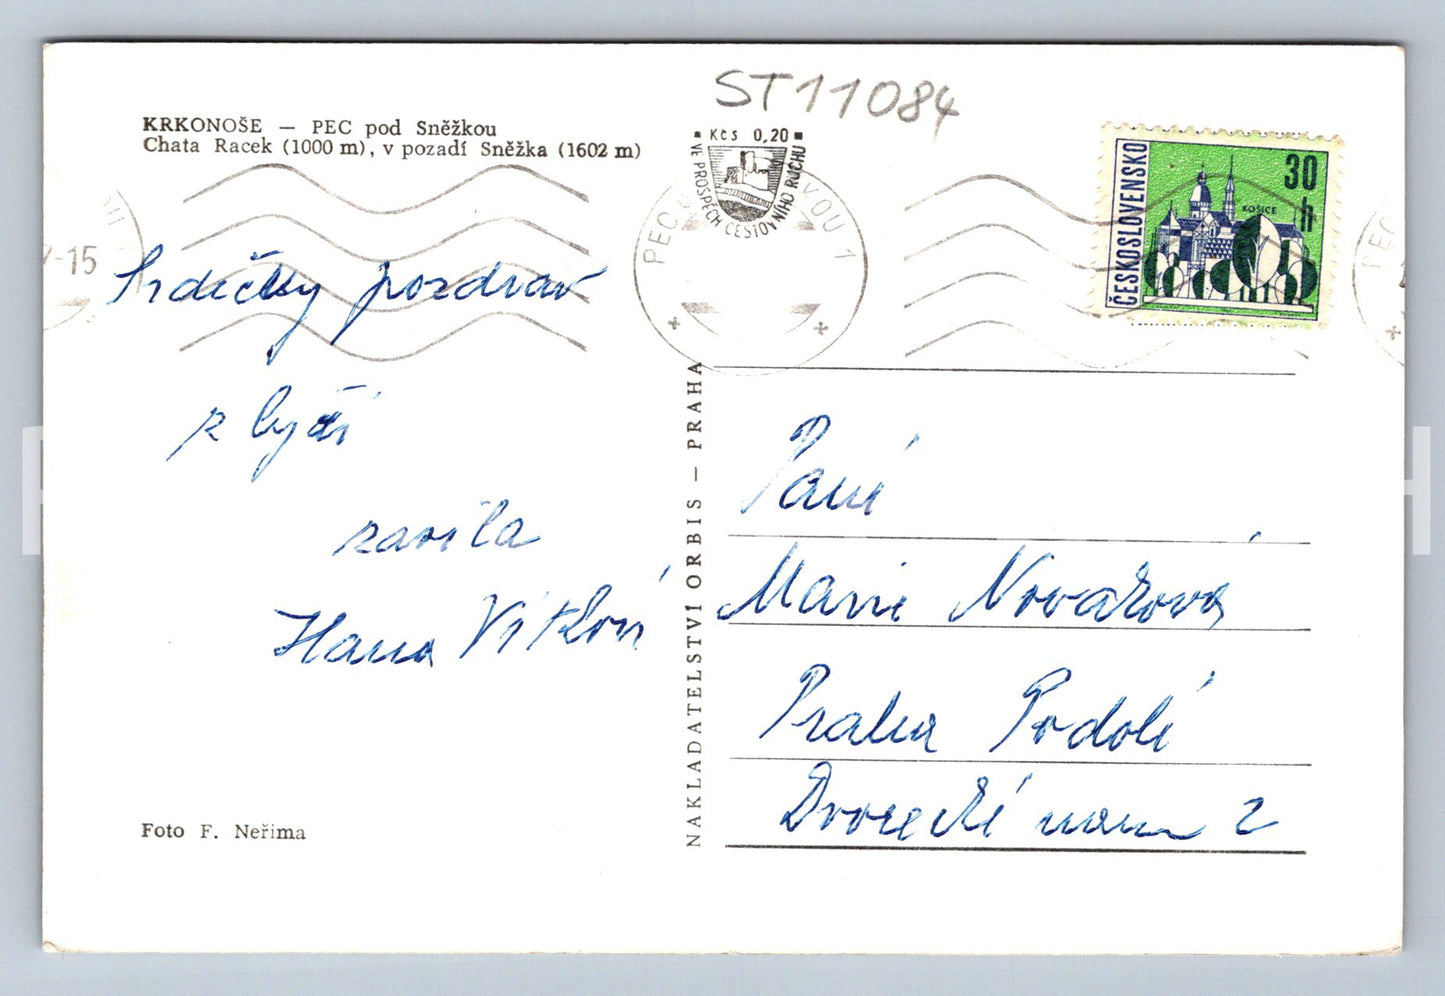 ST11084
KRKONOŠE — PEC pod Sněžkou
Chata Racek (1000 m), v pozadí Sněžka (1602 m)
Kčs 0,20
VE PROSPĚCH CESTOVNÍHO RUCHU
PEC KOU 1
-15
ČESKOSLOVENSKO
30 h
KOŠICE
PEC
Srdečný pozdrav
z lyží
zasílá
Hana Vítková
Foto F. Neřima
NAKLADATELSTVÍ ORBIS — PRAHA
Paní
Marie Nováková
Praha Podolí
Dvorecké nám 2